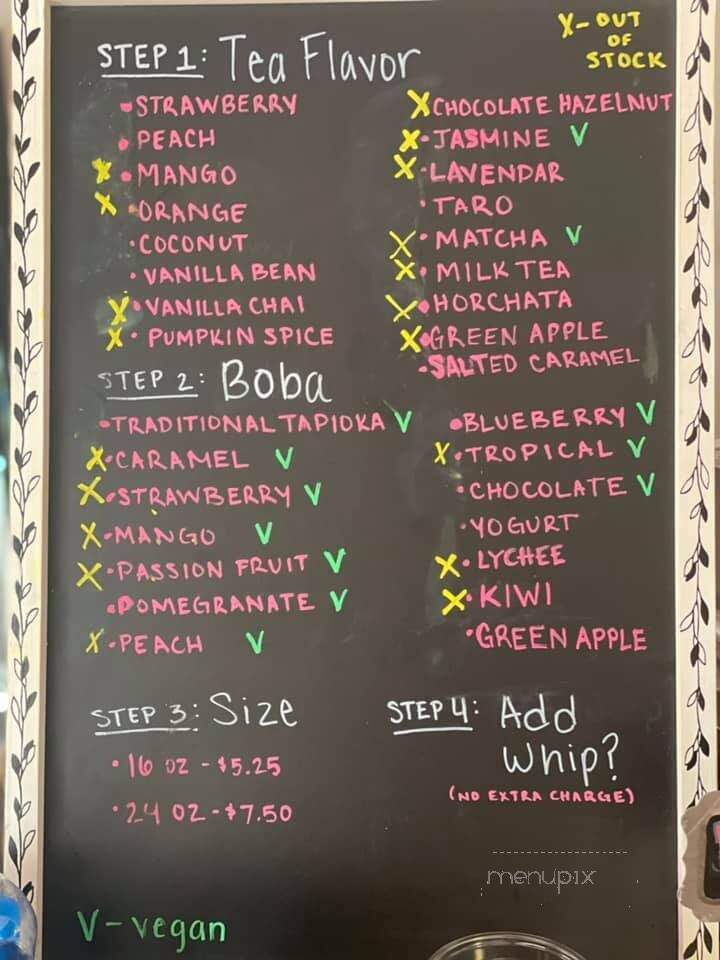 X-OUT
OF
STOCK
STEP 1: Tea Flavor
•STRAWBERRY
•PEACH
X •MANGO
X •ORANGE
•COCONUT
•VANILLA BEAN
X •VANILLA CHAI
X •PUMPKIN SPICE
X CHOCOLATE HAZELNUT
X •JASMINE V
X •LAVENDAR
•TARO
X •MATCHA V
X •MILK TEA
X •HORCHATA
X •GREEN APPLE
•SALTED CARAMEL
STEP 2: Boba
•TRADITIONAL TAPIOKA V
X •CARAMEL V
X •STRAWBERRY V
X •MANGO V
X •PASSION FRUIT V
•POMEGRANATE V
X •PEACH V
•BLUEBERRY V
X •TROPICAL V
•CHOCOLATE V
•YOGURT
X •LYCHEE
X •KIWI
•GREEN APPLE
STEP 3: Size
•16 OZ - $5.25
•24 OZ - $7.50
STEP 4: Add
Whip?
(NO EXTRA CHARGE)
menupix
V-vegan